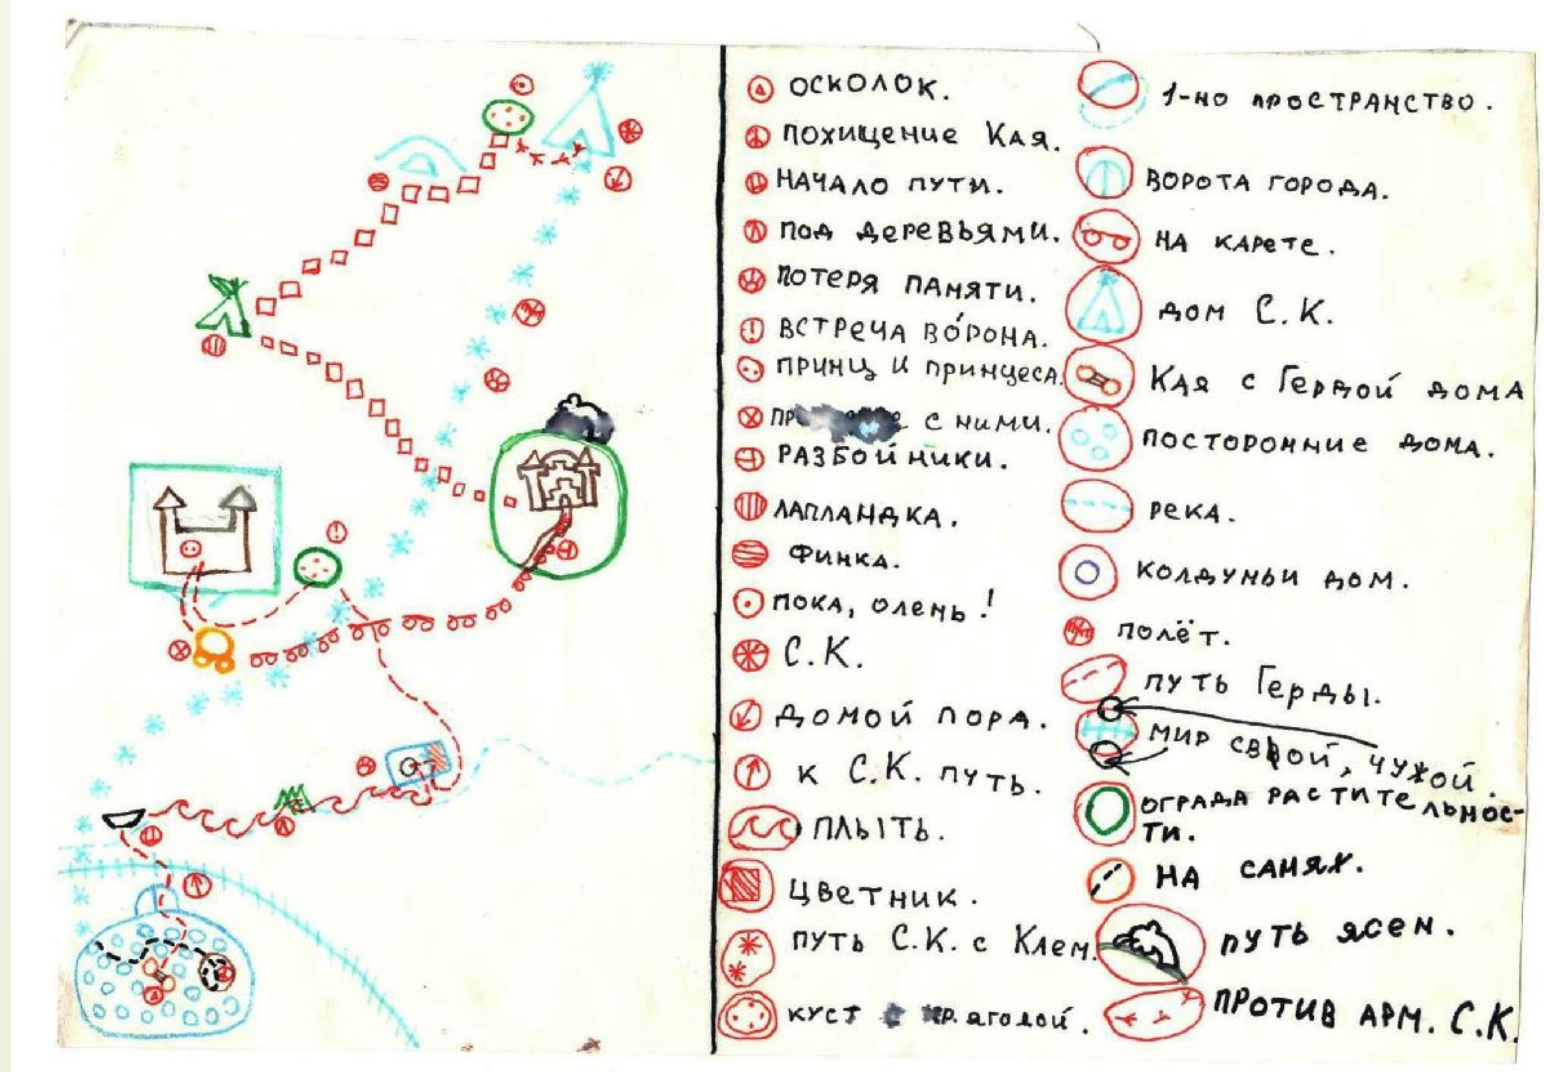 ОСКОЛОК.
ПОХИЩЕНИЕ КАЯ.
НАЧАЛО ПУТИ.
ПОД ДЕРЕВЬЯМИ.
ПОТЕРЯ ПАМЯТИ.
ВСТРЕЧА ВО́РОНА.
ПРИНЦ И ПРИНЦЕСА.
С НИМИ.
РАЗБОЙНИКИ.
ЛАПЛАНДКА.
ФИНКА.
ПОКА, ОЛЕНЬ!
С.К.
ДОМОЙ ПОРА.
К С.К. ПУТЬ.
ПЛЫТЬ.
ЦВЕТНИК.
ПУТЬ С.К. С КЛЕМ.
КУСТ С КР. ЯГОДОЙ.
1-НО ПРОСТРАНСТВО.
ВОРОТА ГОРОДА.
НА КАРЕТЕ.
ДОМ С.К.
КАЯ С ГЕРДОЙ ДОМА
ПОСТОРОННИЕ ДОМА.
РЕКА.
КОЛДУНЬИ ДОМ.
ПОЛЁТ.
ПУТЬ ГЕРДЫ.
МИР СВОЙ, ЧУЖОЙ.
ОГРАДА РАСТИТЕЛЬНОС-
ТИ.
НА САНЯХ.
ПУТЬ ЯСЕН.
ПРОТИВ АРМ. С.К.